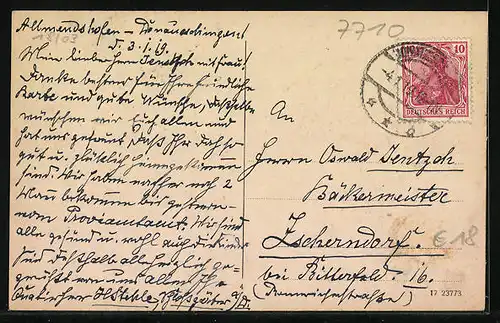 Allmendshofen - Donaueschingen
d. 3.1.19.
Mein lieber Herr Jentzsch nebst Frau!
Danke bestens für Ihre freundliche
Karte und gute Wünsche, dasselbe
wünschen wir Euch allen und
hat uns gefreut, daß Ihr doch so
gut u. glücklich heimgekommen
sind. Wir haben nachher noch 2
Mann bekommen bis gestern
vom Proviantamt. Wir sind
alle gesund u. wohl auch die Kinder
sind deshalb alle herzlich ge-
grüßt von uns allen
7710
13/03
10
DEUTSCHES REICH
An
Herrn Oswald Jentzsch
Bäckermeister
Zscherndorf
bei Bitterfeld. 16.
€18
17 23773